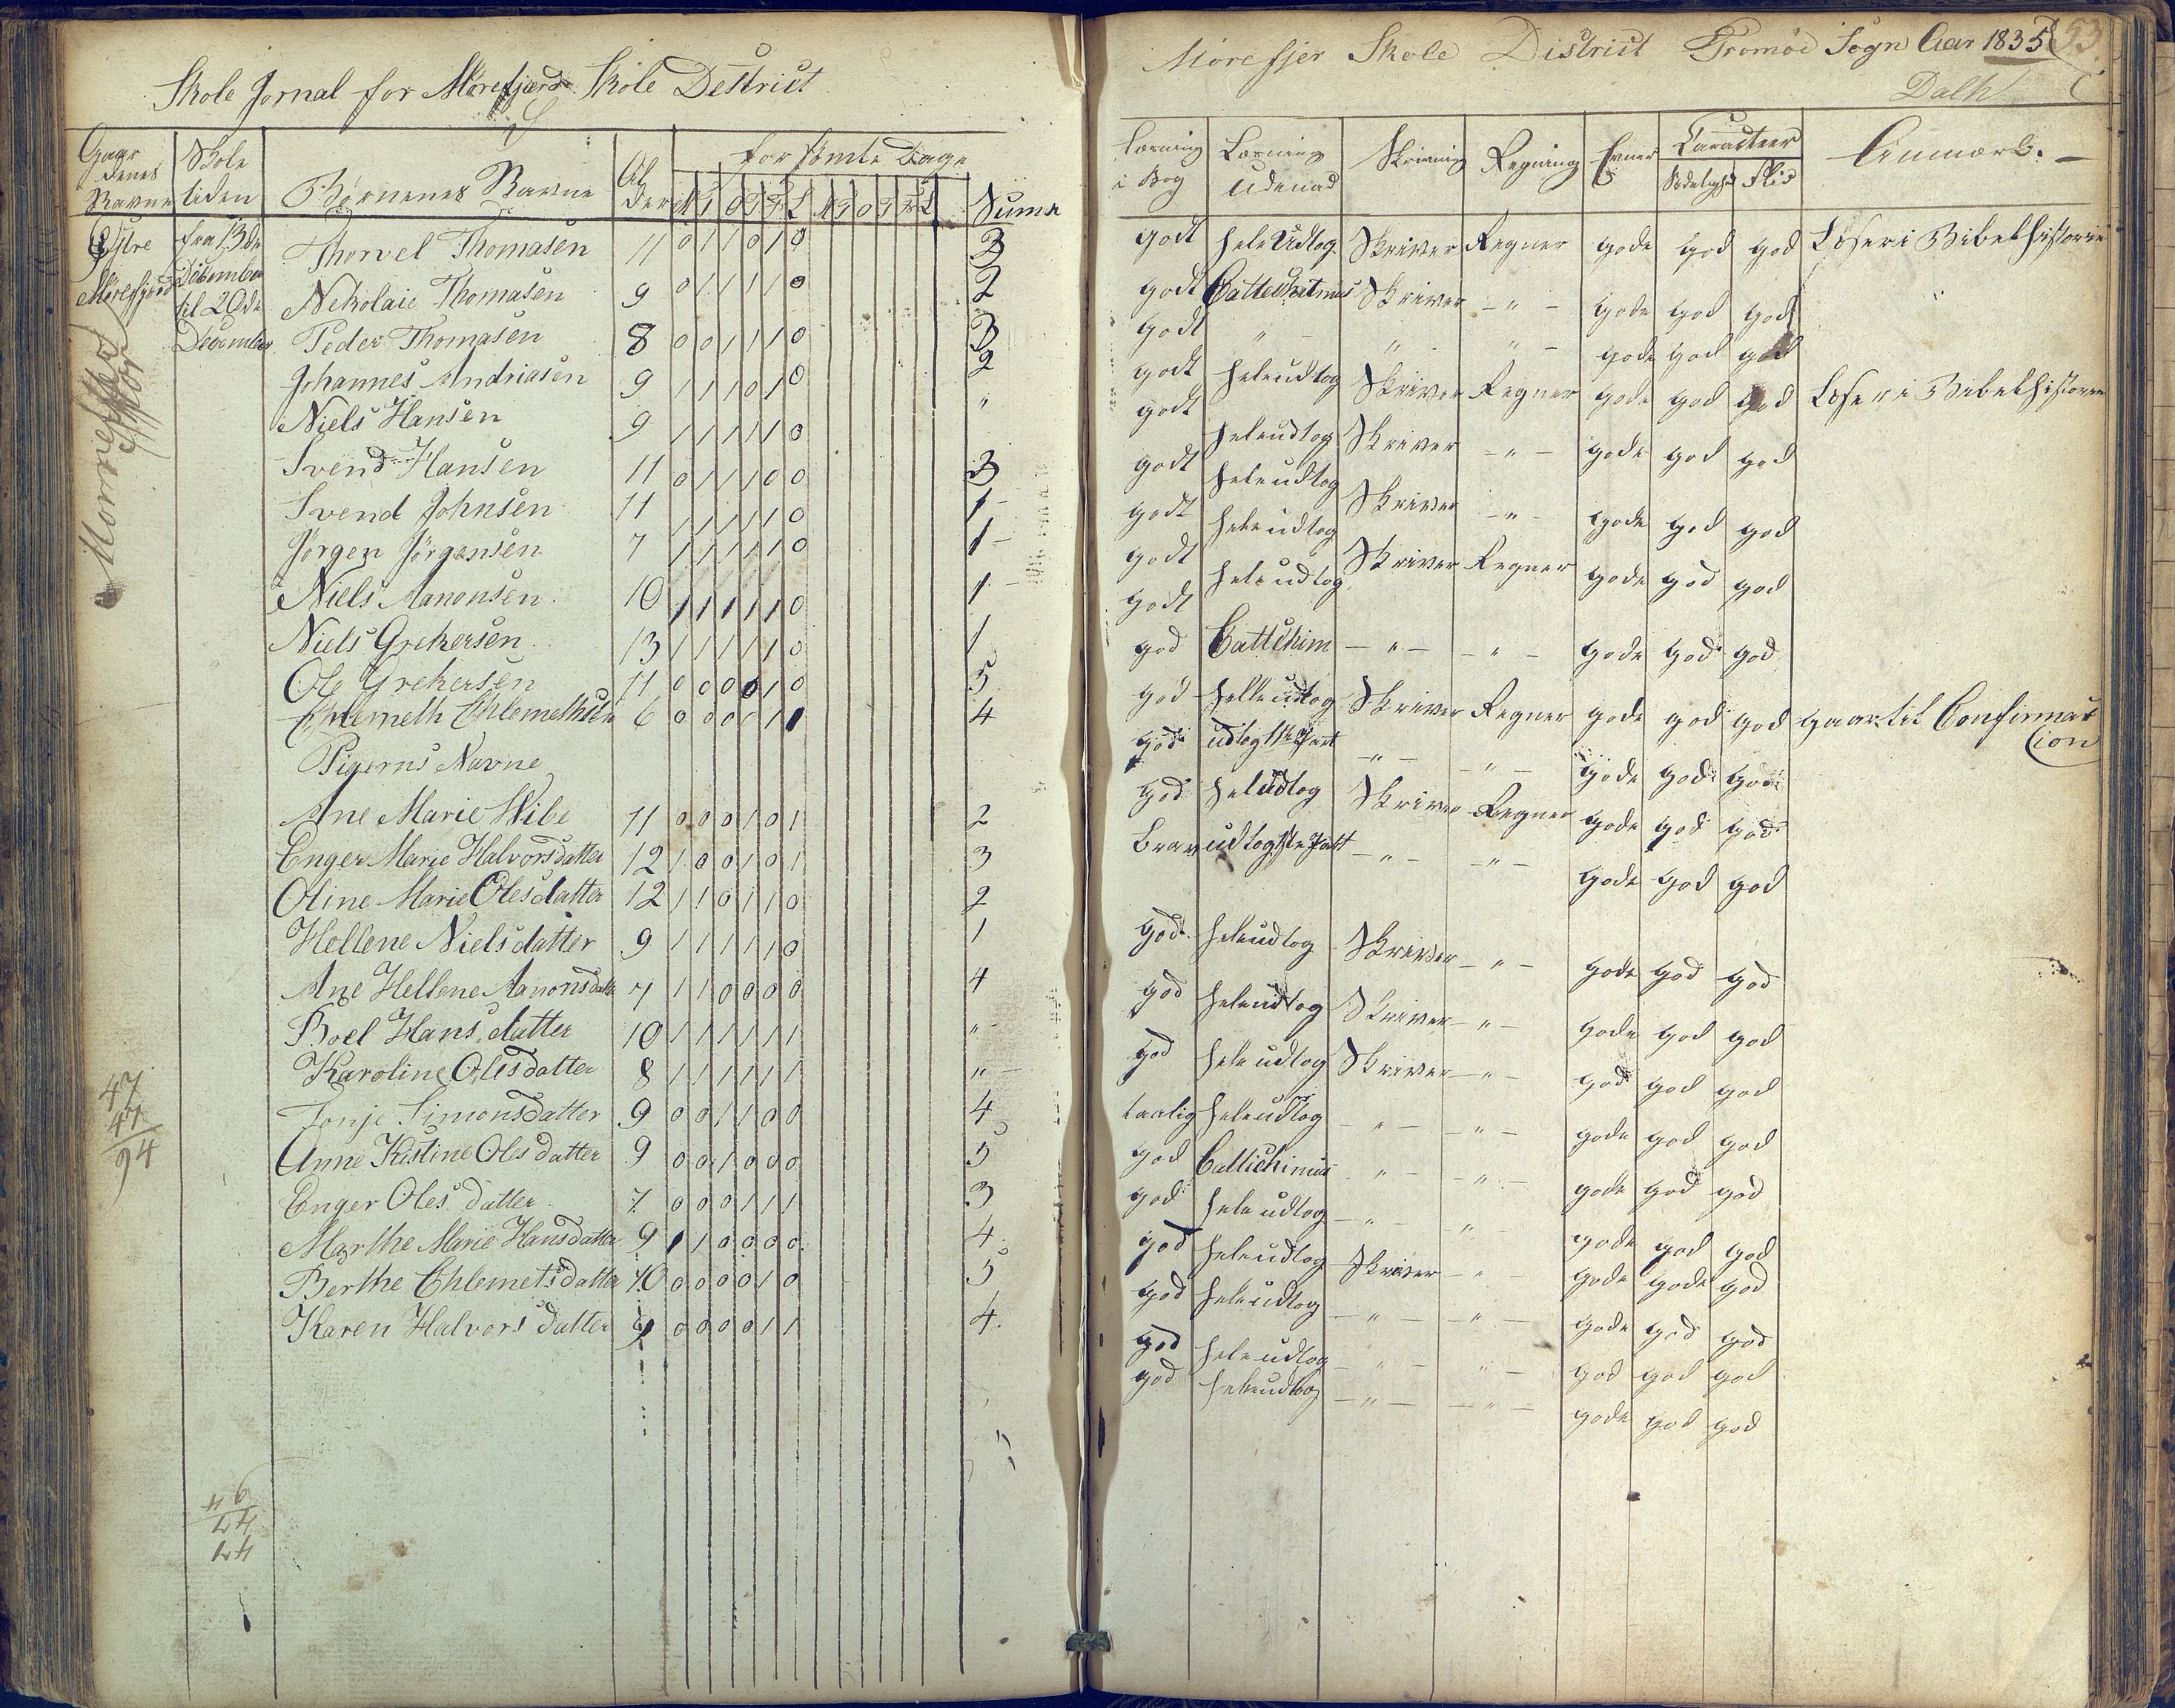 Skole Jornal for Mørefjærs Skole Destrict
Gaardenes Navne | Skoletiden | Børnenes Navne | Alder | forsömte Dage | Suma
M T O T F L M T O T F L
Østre Mørefjærd
fra 13de December til 20de December
Thorvel Thomasen 11 0 1 1 0 1 0 3
Nekolaie Thomasen 9 0 1 1 1 1 0 2
Peder Thomasen 8 0 0 1 1 1 0 3
Johannes Andriasen 9 1 1 1 0 1 0 2
Niels Hansen 9 1 1 1 1 1 0 "
Svend Hansen 11 0 1 1 1 0 0 3
Svend Johnsen 11 1 1 1 1 1 0 1
Jørgen Jørgensen 7 1 1 1 1 1 0 1
Niels Aanonsen 10 1 1 1 1 1 0 1
Niels Grekersen 13 1 1 1 1 1 0 1
Ole Grekersen 11 0 0 0 0 1 0 5
Ehlemeth Ehlemethsen 6 0 0 0 0 1 1 4
Pigerns Navne
Ane Marie Wibe 11 0 0 0 1 0 1 2
Enger Marie Halvorsdatter 12 1 0 0 1 0 1 3
Oline Marie Olesdatter 12 1 1 0 1 1 0 2
Hellene Nielsdatter 9 1 1 1 1 1 0 1
Ane Hellene Aanonsdatte 7 1 1 0 0 0 0 4
Boel Hans datter 10 1 1 1 1 1 1 "
Karoline Olesdatter 8 1 1 1 1 1 1 "
Tonje Simonsdatter 9 0 0 1 1 0 0 4
Anne Kistine Oles datter 9 0 0 1 0 0 0 5
Enger Oles datter 7 0 0 0 1 1 1 3
Marthe Marie Hansdatter 9 1 1 0 0 0 0 4
Berthe Ehlemetsdatter 10 0 0 0 0 1 0 5
Karen Halvors datter 9 0 0 0 0 1 1 4
47
47
94
Mørefjer Skole District Tromöe Sogn Aar 1835 53
Dalh
Læsning i Bog | Læsning udenad | Skrivning | Regning | Evner | Caracteer | Anmærk.
Sædelighed Flid
godt hele Udtog Skriver Regner gode god god Læser i Bibelhistorie
godt Cattechitmus Skriver - " - gode god god
godt " " " - gode god god
godt heleudtog Skriver Regner gode god god Læser i Bibelhistorien
godt heleudtog Skriver - " - gode god god
godt heleudtog Skriver - " - gode god god
godt heleudtog Skriver Regner gode god god
godt heleudtog
godt Cattchim - " - - " - gode god god
god helleudtog Skriver Regner gode god god gaar til Confirmat
cion
god udtog 1ste Part - " - - " - gode god god
god heludtog Skriver Regner gode god god
Brav udtog 1ste Patt - " - - " - gode god god
god heleudtog Skriver - " - gode god god
god heleudtog Skriver - " - gode god god
god hele udtog Skriver - " - god god god
taalig heleudtog - " - - " - gode god god
god Cattichimus " - - " - gode god god
god hele udtog - " - " gode god god
god heleudtog Skriver - " - gode gode god
god heleudtog - " - - " - gode god god
god heleudtog - " - " - god god god
god heleudtog - " - - " - gode god god